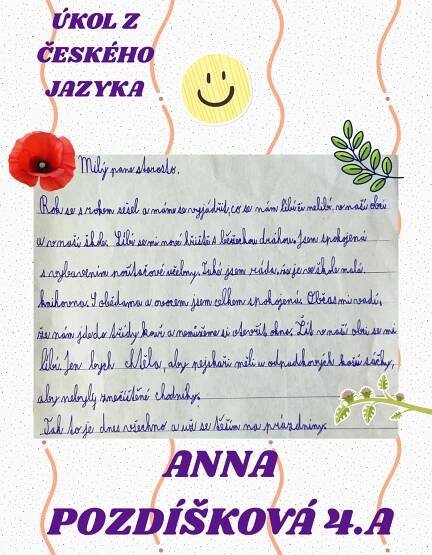 ÚKOL Z
ČESKÉHO
JAZYKA
Milý pane starosto.
Rok se s rokem sešel a máme se vyjádřit, co se nám líbí či nelíbí v naší obci
a v naší škole. Líbí se mi nové hřiště s běžeckou dráhou. Jsem spokojená
s vybavením počítačové učebny. Také jsem ráda, že je ve škole malá
knihovna. S obědama a ovocem jsem celkem spokojená. Občas mi vadí,
že nám jde do třídy kouř a nemůžeme si otevřít okno. Žít v naší obci se mi
líbí. Jen bych chtěla, aby pejskaři měli u odpadkových košů sáčky,
aby nebyly znečištěné chodníky.
Tak to je dnes všechno a už se těším na prázdniny.
ANNA
POZDÍŠKOVÁ 4.A